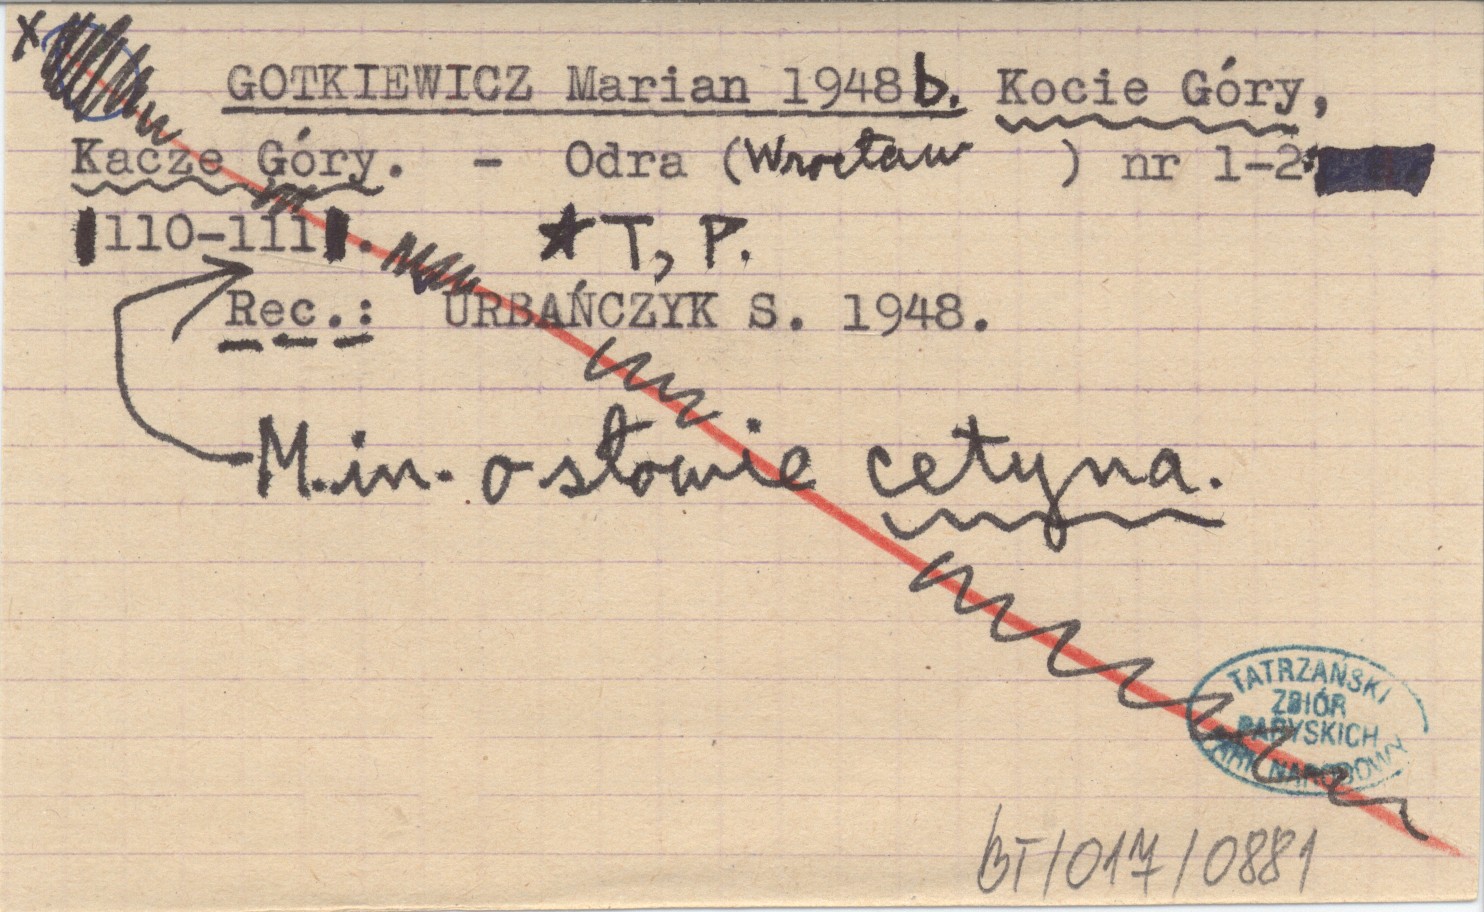 x
GOTKIEWICZ Marian 1948b. Kocie Góry,
Kacze Góry. - Odra (Wrocław ) nr 1-2
110-111. ★T, P.
Rec.: URBAŃCZYK S. 1948.
M.in. o słowie cetyna.
TATRZAŃSKI
ZBIÓR
PARYSKICH
PARK NARODOWY
BT/017/0881